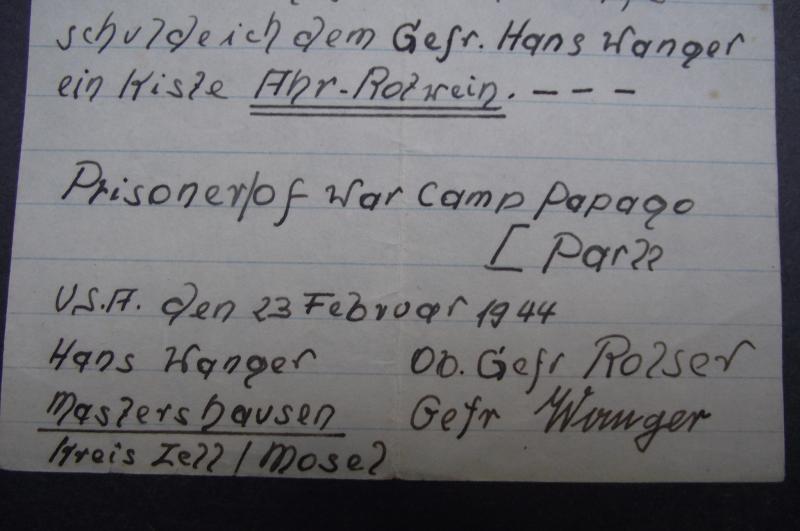 schuldeich dem Gefr. Hans Wanger
ein Kiste Ahr-Rotwein. - - -
Prisoner/of War Camp Papago
[ Park
U.S.A. den 23 Februar 1944
Hans Wanger Ob. Gefr Rolser
Mastershausen Gefr Wanger
Kreis Zell / Mosel